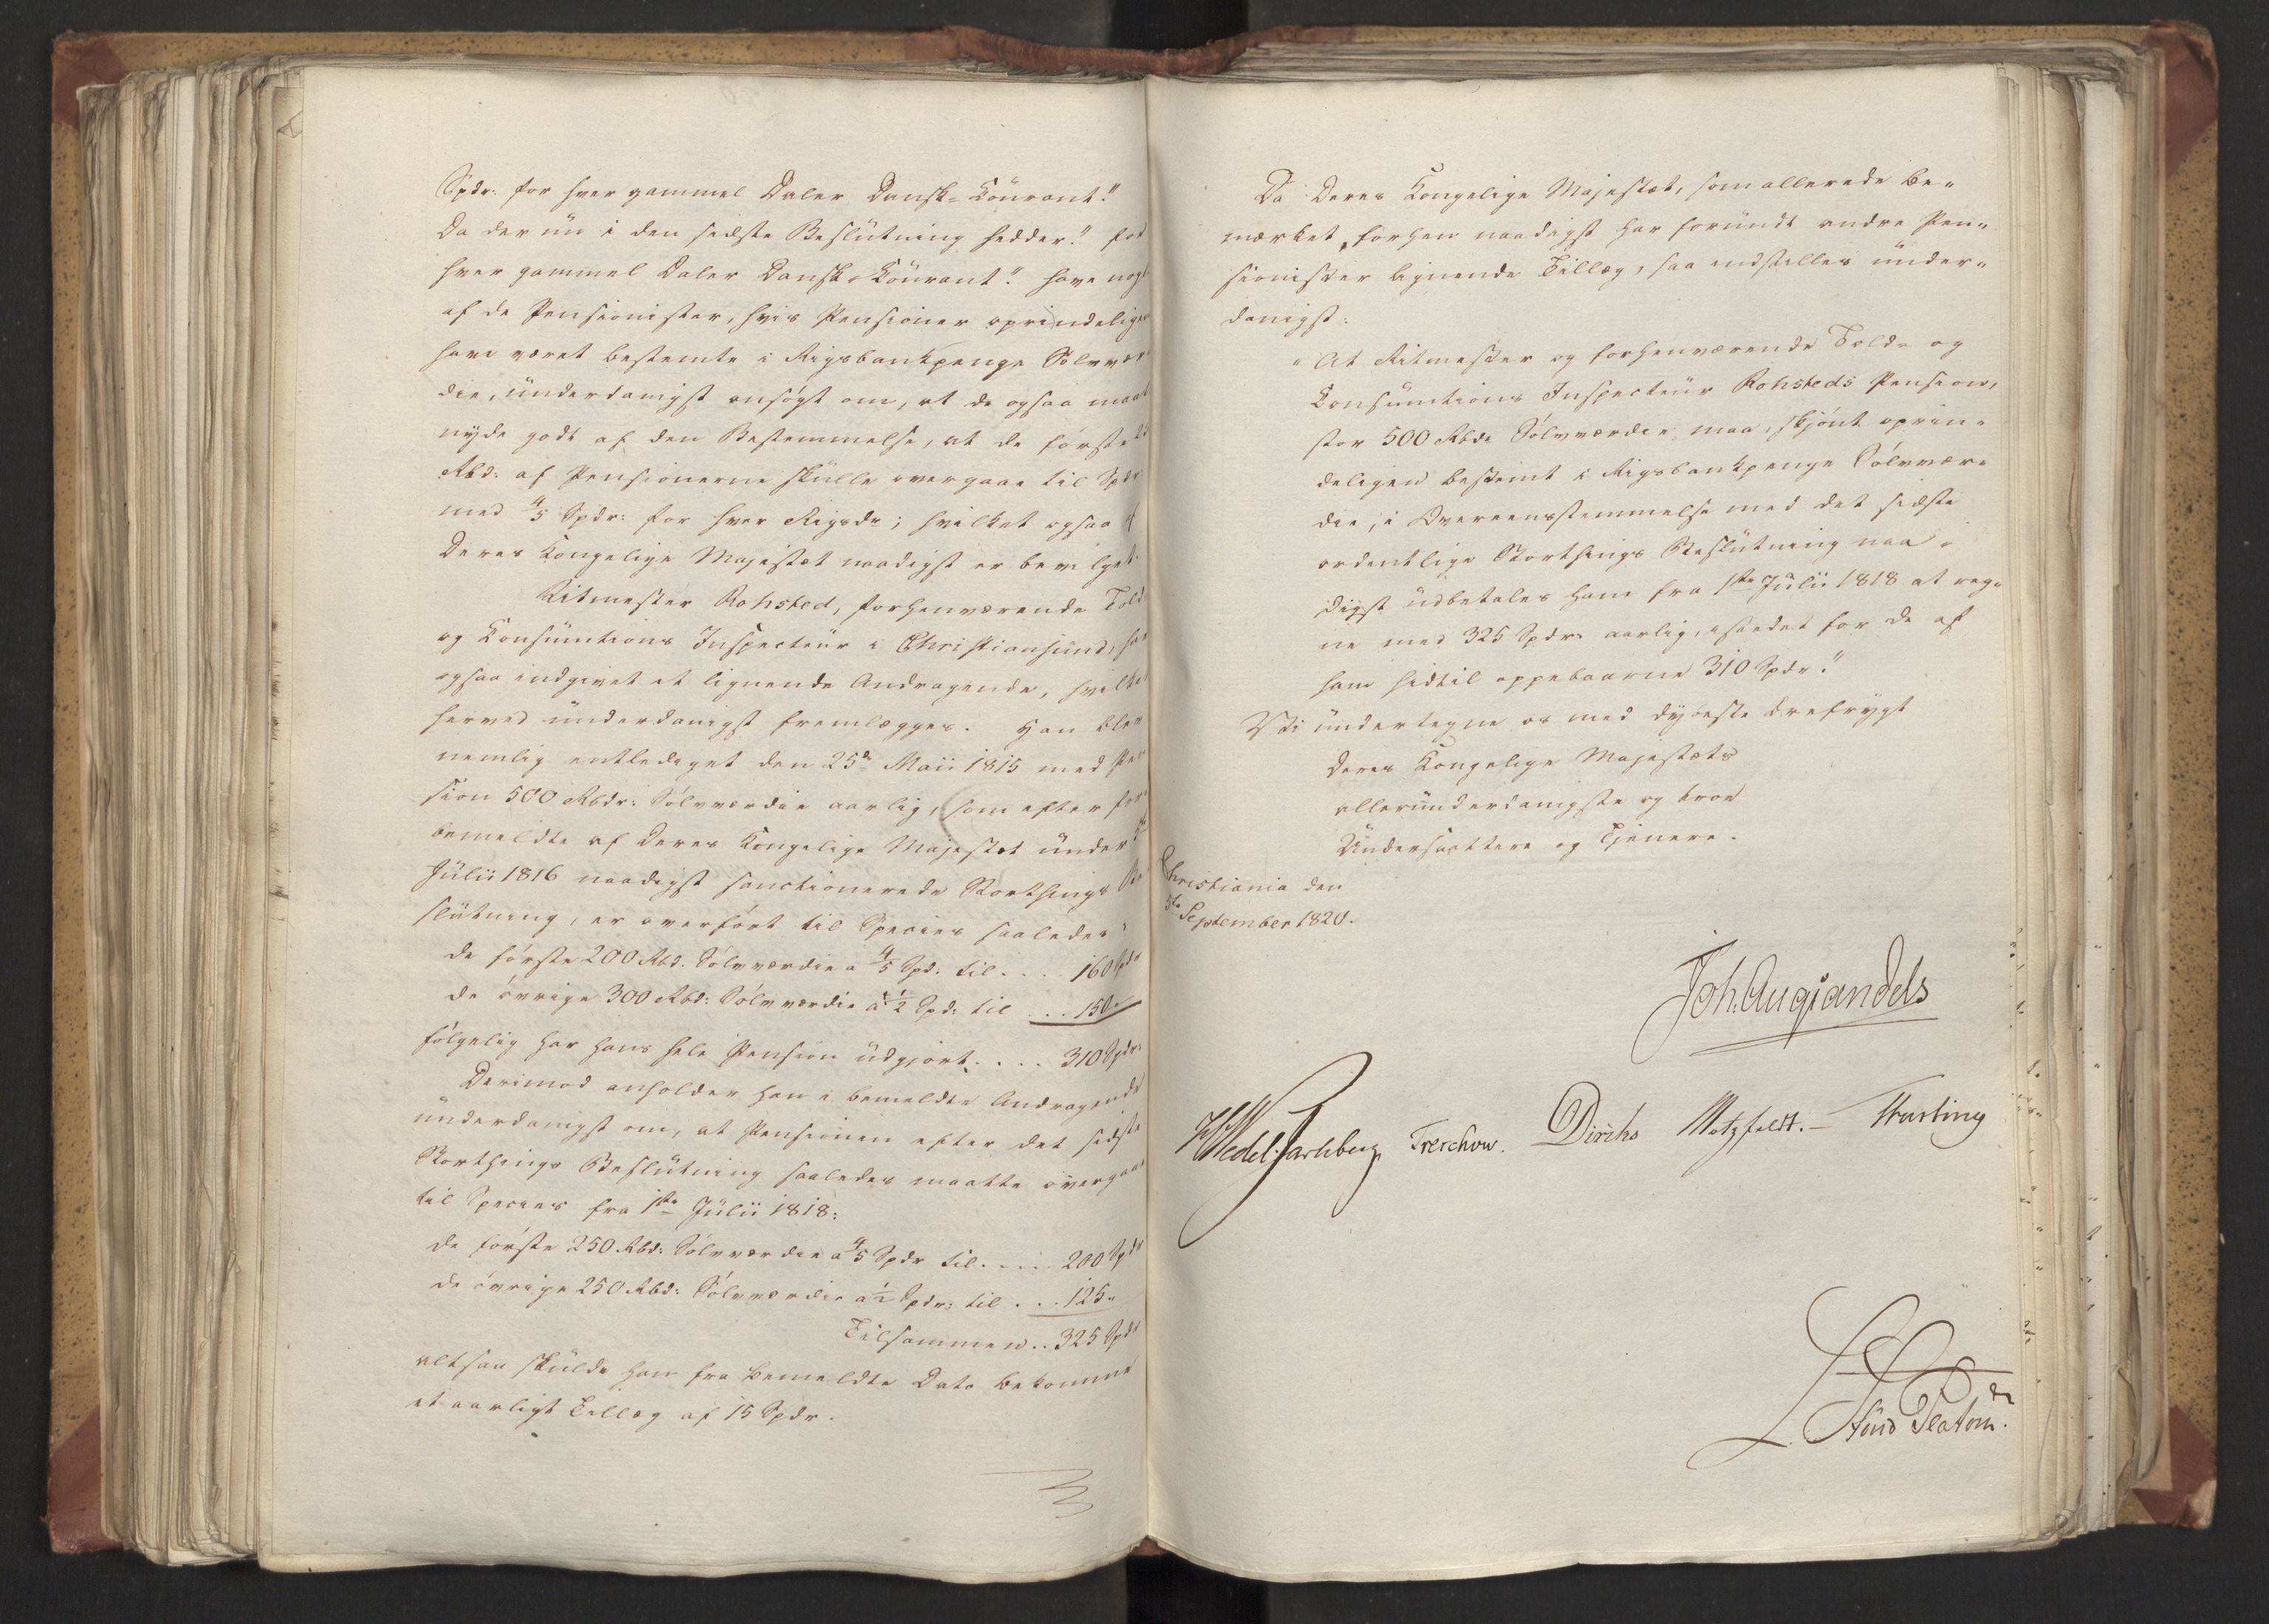 Spdr. for hver gammel Daler Dansk-Courant."
Da der nu i den sidste Beslutning hedder "for
hver gammel Daler Dansk-Courant." have nogle
af de Pensionister, hvis Pensioner oprindeligen
have været bestemte i Rigsbankpenge Sølvvær-
die, underdanigst ansøgt om, at de ogsaa maatte
nyde godt af den Bestemmelse, at de første 25
Rbd: af Pensionerne skulle overgaae til Spdr:
med 4/5 Spdr: for hver Rigsdr; hvilket ogsaa af
Deres Kongelige Majestæt naadigst er bevilget.
Ritmester Rohsted, forhenværende Told
og Consumtions Inspecteur i Christiansund, har
ogsaa indgivet et lignende Andragende, hvilket
herved underdanigst fremlægges. Han blev
nemlig entlediget den 25de Maii 1815 med Pen
sion 500 Rbdr: Sølvværdie aarlig, som efter for
bemeldte af Deres Kongelige Majestæt under
Julii 1816 naadigst sanctionerede Storthings Be
slutning, er overført til Species saaledes:
de første 200 Rbd. Sølvværdie a 4/5 Spd: til .... 160 Spdr
de øvrige 300 Rbd: Sølvværdie a 1/2 Spd: til ... 150 "
følgelig har hans hele Pension udgjort .... 310 Spdr.
Derimod anholder han i bemeldte Andragende
underdanigst om, at Pensionen efter det sidste
Storthings Beslutning saaledes maatte overgaae
til Species fra 1ste Julii 1818:
de første 250 Rbd: Sølvværdie a 4/5 Spdr til .... 200 Spdr
de øvrige 250 Rbd: Sølvværdie a 1/2 Spdr: til ... 125 "
Tilsammen .. 325 Spdr
altsaa skulde han fra bemeldte Dato bekomme
et aarligt Tillæg af 15 Spdr.
Da Deres Kongelige Majestæt, som allerede be-
mærket, forhen naadigst har forundt andre Pen-
sionister lignende Tillæg, saa indstilles under-
danigst:
"At Ritmester og forhenværende Told- og
Consumtions Inspecteur Rohsteds Pension,
stor 500 Rbd. Sølvværdie maa, skjönt oprin-
deligen bestemt i Rigsbankpenge Sølvvær-
die, i Overeensstemmelse med det sidste
ordentlige Storthings Beslutning naa-
digst udbetales ham fra 1ste Julii 1818 at reg-
ne med 325 Spdr. aarlig, istedet for de af
ham hidtil oppebaarne 310 Spdr."
Vi undertegne os med dybeste Ærefrygt
Deres Kongelige Majestæts
allerunderdanigste og troe
Undersaattere og Tjenere.
Christiania den
5te September 1820.
Joh. Aug Sandels
HWedel Jarlsberg Treschow. Diriks Motzfeldt.- Fasting